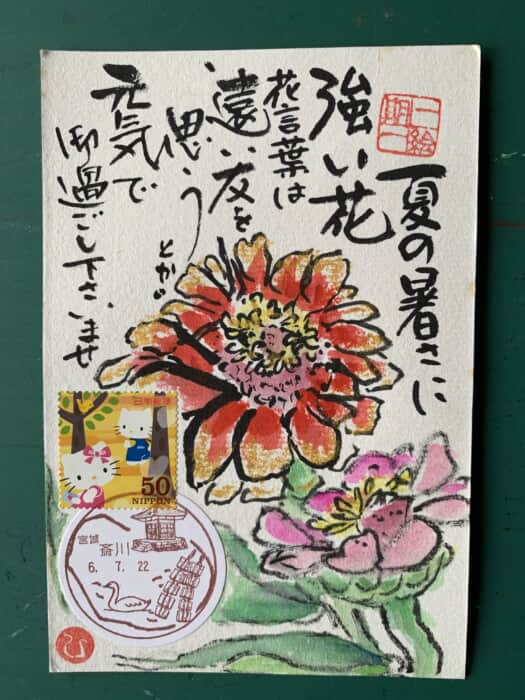 夏の暑さに
強い花
花言葉は
遠い友を
思う
とか。
元気で
御過ごし下さいませ
一絵
期一
日本郵便
50
NIPPON
宮城
斎川
6.7.22
ひ